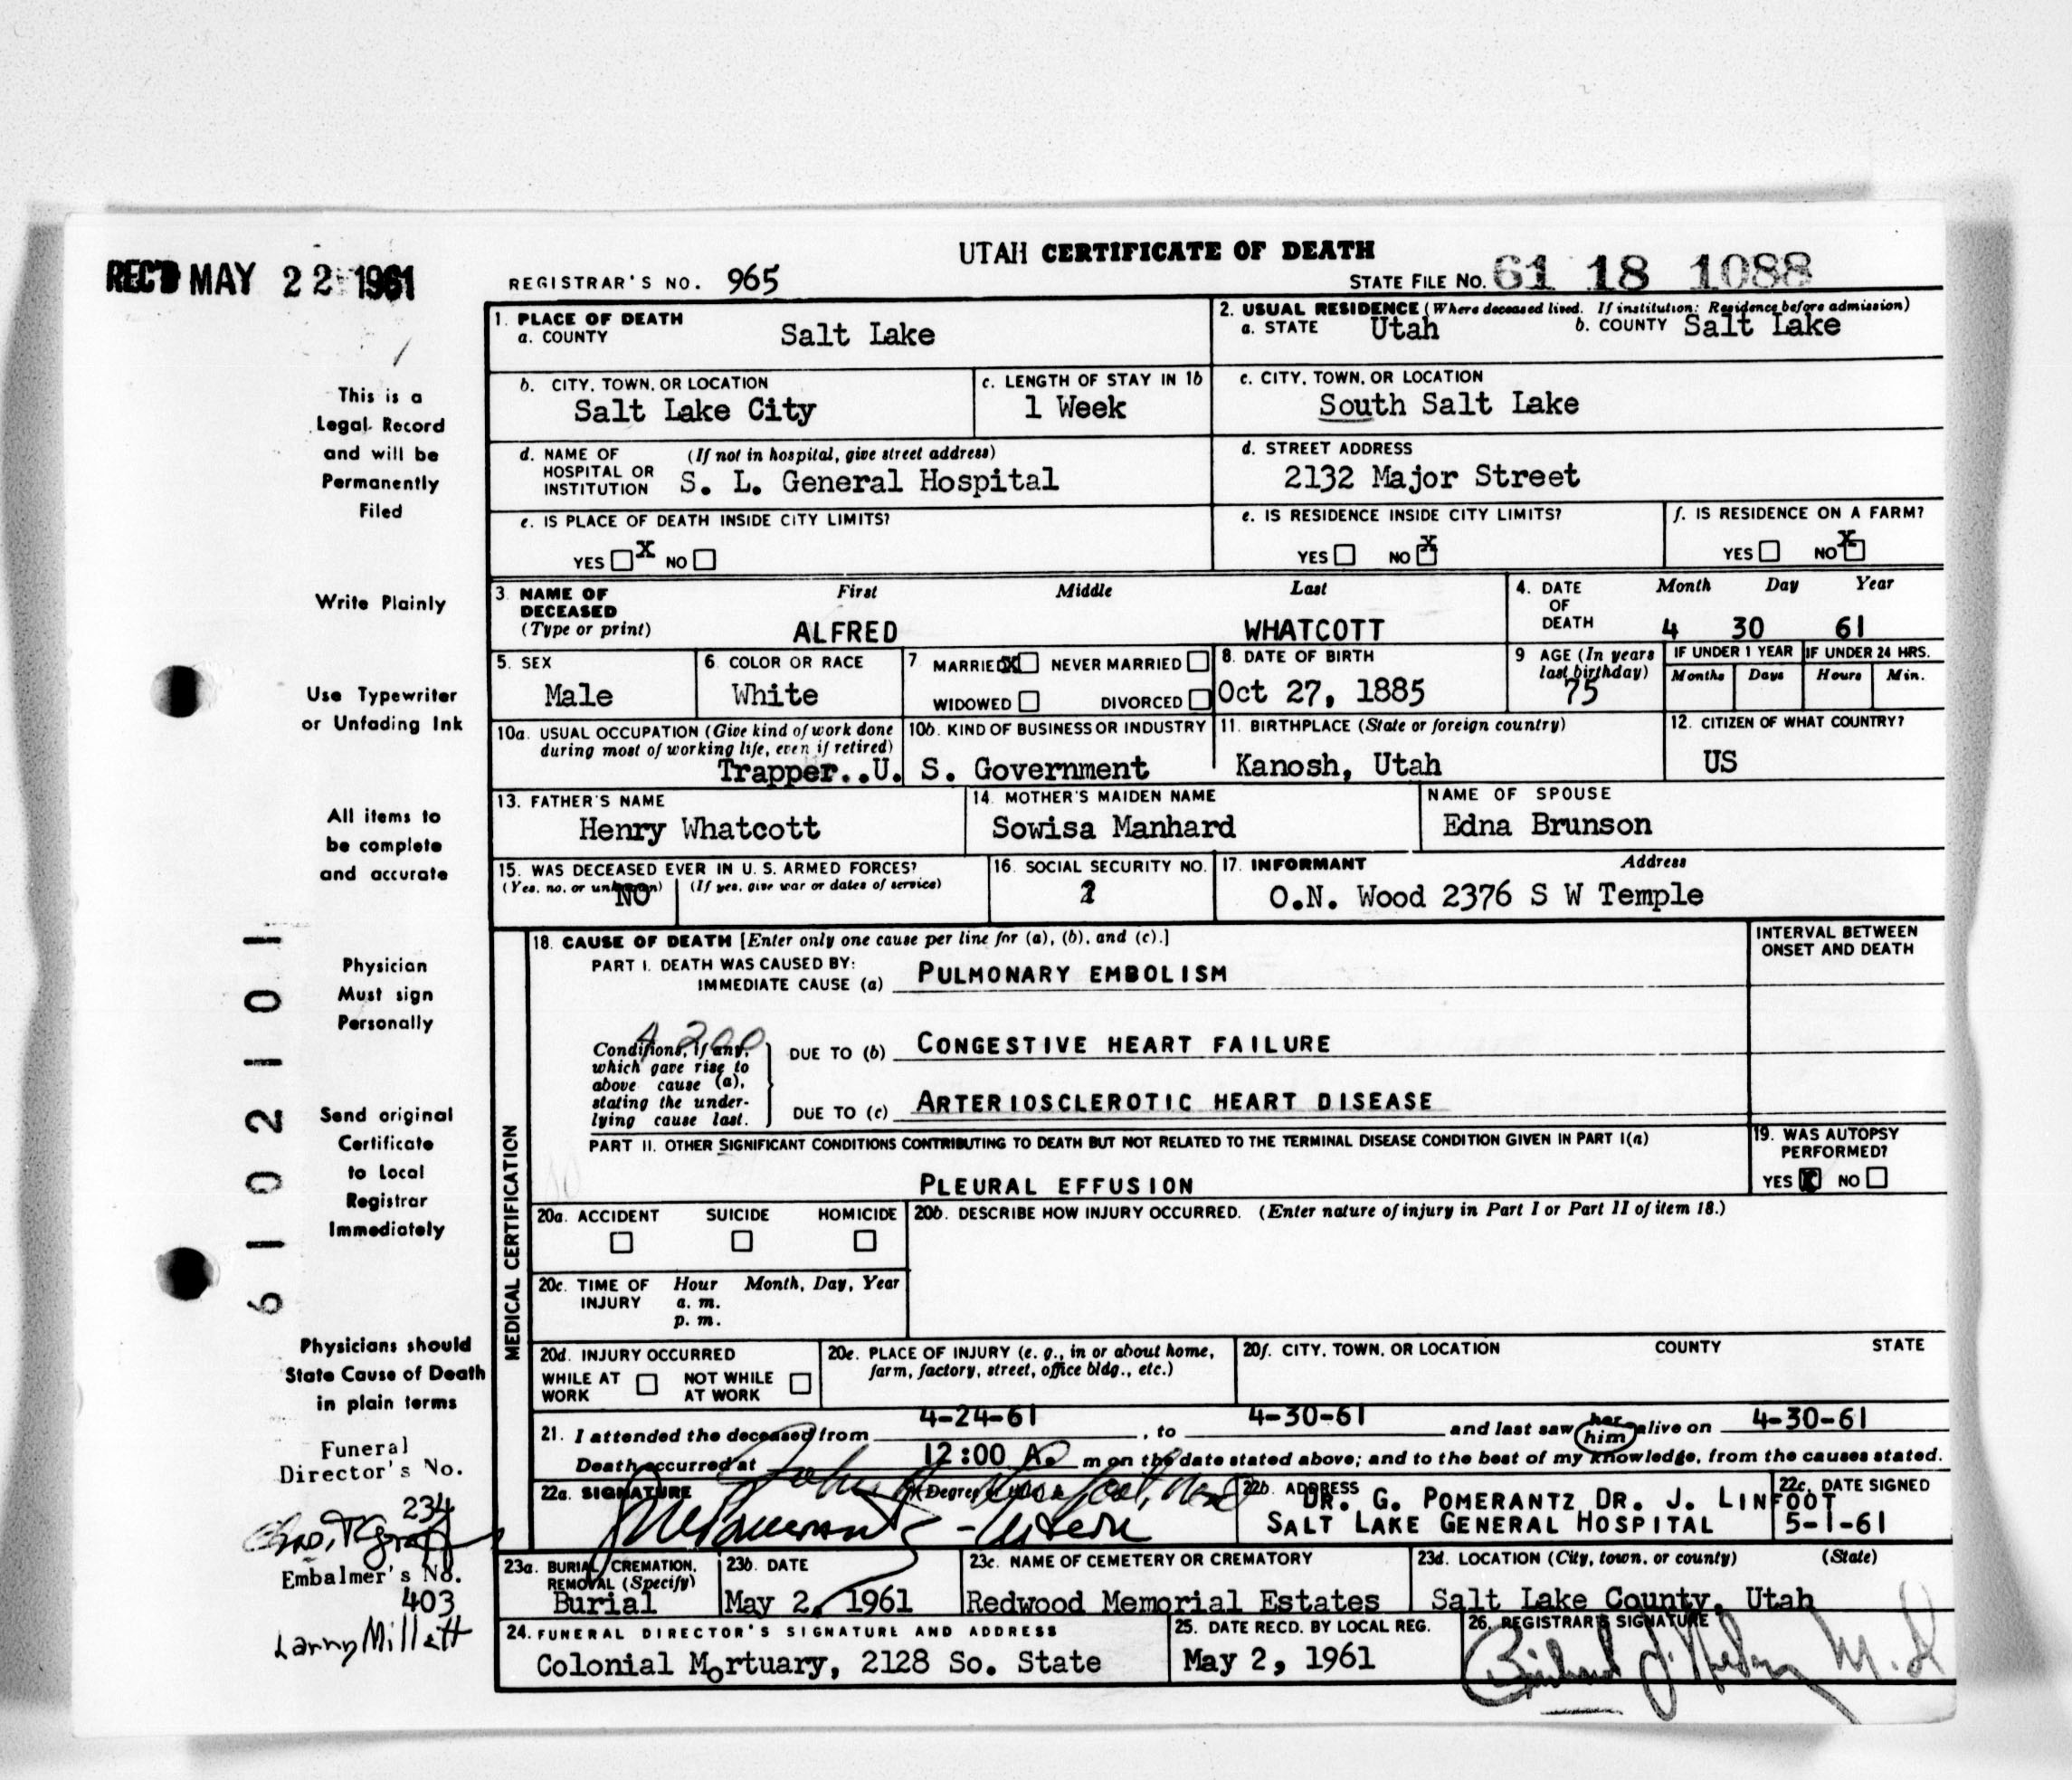 UTAH CERTIFICATE OF DEATH
REC'D MAY 22 1961
REGISTRAR'S NO. 965
STATE FILE No. 61 18 1088
1. PLACE OF DEATH
a. COUNTY Salt Lake
2. USUAL RESIDENCE (Where deceased lived. If institution: Residence before admission)
a. STATE Utah b. COUNTY Salt Lake
b. CITY, TOWN, OR LOCATION
Salt Lake City
c. LENGTH OF STAY IN 1b
1 Week
c. CITY, TOWN, OR LOCATION
South Salt Lake
d. NAME OF (If not in hospital, give street address)
HOSPITAL OR
INSTITUTION S. L. General Hospital
d. STREET ADDRESS
2132 Major Street
e. IS PLACE OF DEATH INSIDE CITY LIMITS?
YES X NO
e. IS RESIDENCE INSIDE CITY LIMITS?
YES NO X
f. IS RESIDENCE ON A FARM?
YES NO X
3. NAME OF First Middle Last
DECEASED
(Type or print) ALFRED WHATCOTT
4. DATE Month Day Year
OF
DEATH 4 30 61
5. SEX
Male
6. COLOR OR RACE
White
7 MARRIED X NEVER MARRIED
WIDOWED DIVORCED
8. DATE OF BIRTH
Oct 27, 1885
9 AGE (In years
last birthday)
75
IF UNDER 1 YEAR
Months Days
IF UNDER 24 HRS.
Hours Min.
10a. USUAL OCCUPATION (Give kind of work done
during most of working life, even if retired)
10b. KIND OF BUSINESS OR INDUSTRY
Trapper..U. S. Government
11. BIRTHPLACE (State or foreign country)
Kanosh, Utah
12. CITIZEN OF WHAT COUNTRY?
US
13. FATHER'S NAME
Henry Whatcott
14. MOTHER'S MAIDEN NAME
Sowisa Manhard
NAME OF SPOUSE
Edna Brunson
15. WAS DECEASED EVER IN U. S. ARMED FORCES?
(Yes, no, or unknown) (If yes, give war or dates of service)
NO
16. SOCIAL SECURITY NO.
17. INFORMANT Address
O.N. Wood 2376 S W Temple
MEDICAL CERTIFICATION
18. CAUSE OF DEATH [Enter only one cause per line for (a), (b), and (c).]
INTERVAL BETWEEN
ONSET AND DEATH
PART I. DEATH WAS CAUSED BY:
IMMEDIATE CAUSE (a) PULMONARY EMBOLISM
Conditions, if any,
which gave rise to
above cause (a),
stating the under-
lying cause last.
DUE TO (b) CONGESTIVE HEART FAILURE
DUE TO (c) ARTERIOSCLEROTIC HEART DISEASE
PART II. OTHER SIGNIFICANT CONDITIONS CONTRIBUTING TO DEATH BUT NOT RELATED TO THE TERMINAL DISEASE CONDITION GIVEN IN PART I(a)
PLEURAL EFFUSION
19. WAS AUTOPSY
PERFORMED?
YES X NO
20a. ACCIDENT SUICIDE HOMICIDE
20b. DESCRIBE HOW INJURY OCCURRED. (Enter nature of injury in Part I or Part II of item 18.)
20c. TIME OF Hour Month, Day, Year
INJURY a. m.
p. m.
20d. INJURY OCCURRED
WHILE AT NOT WHILE
WORK AT WORK
20e. PLACE OF INJURY (e. g., in or about home,
farm, factory, street, office bldg., etc.)
20f. CITY, TOWN, OR LOCATION COUNTY STATE
21. I attended the deceased from 4-24-61, to 4-30-61 and last saw her him alive on 4-30-61
Death occurred at 12:00 A. m on the date stated above; and to the best of my knowledge, from the causes stated.
22a. SIGNATURE
22b. ADDRESS
DR. G. POMERANTZ DR. J. LINFOOT
SALT LAKE GENERAL HOSPITAL
22c. DATE SIGNED
5-1-61
23a. BURIAL, CREMATION,
REMOVAL (Specify)
Burial
23b. DATE
May 2, 1961
23c. NAME OF CEMETERY OR CREMATORY
Redwood Memorial Estates
23d. LOCATION (City, town, or county) (State)
Salt Lake County, Utah
24. FUNERAL DIRECTOR'S SIGNATURE AND ADDRESS
Colonial Mortuary, 2128 So. State
25. DATE RECD. BY LOCAL REG.
May 2, 1961
26. REGISTRAR'S SIGNATURE
This is a
Legal Record
and will be
Permanently
Filed
Write Plainly
Use Typewriter
or Unfading Ink
All items to
be complete
and accurate
Physician
Must sign
Personally
Send original
Certificate
to Local
Registrar
Immediately
Physicians should
State Cause of Death
in plain terms
Funeral
Director's No.
234
Embalmer's No.
403
Larry Millett
6102101